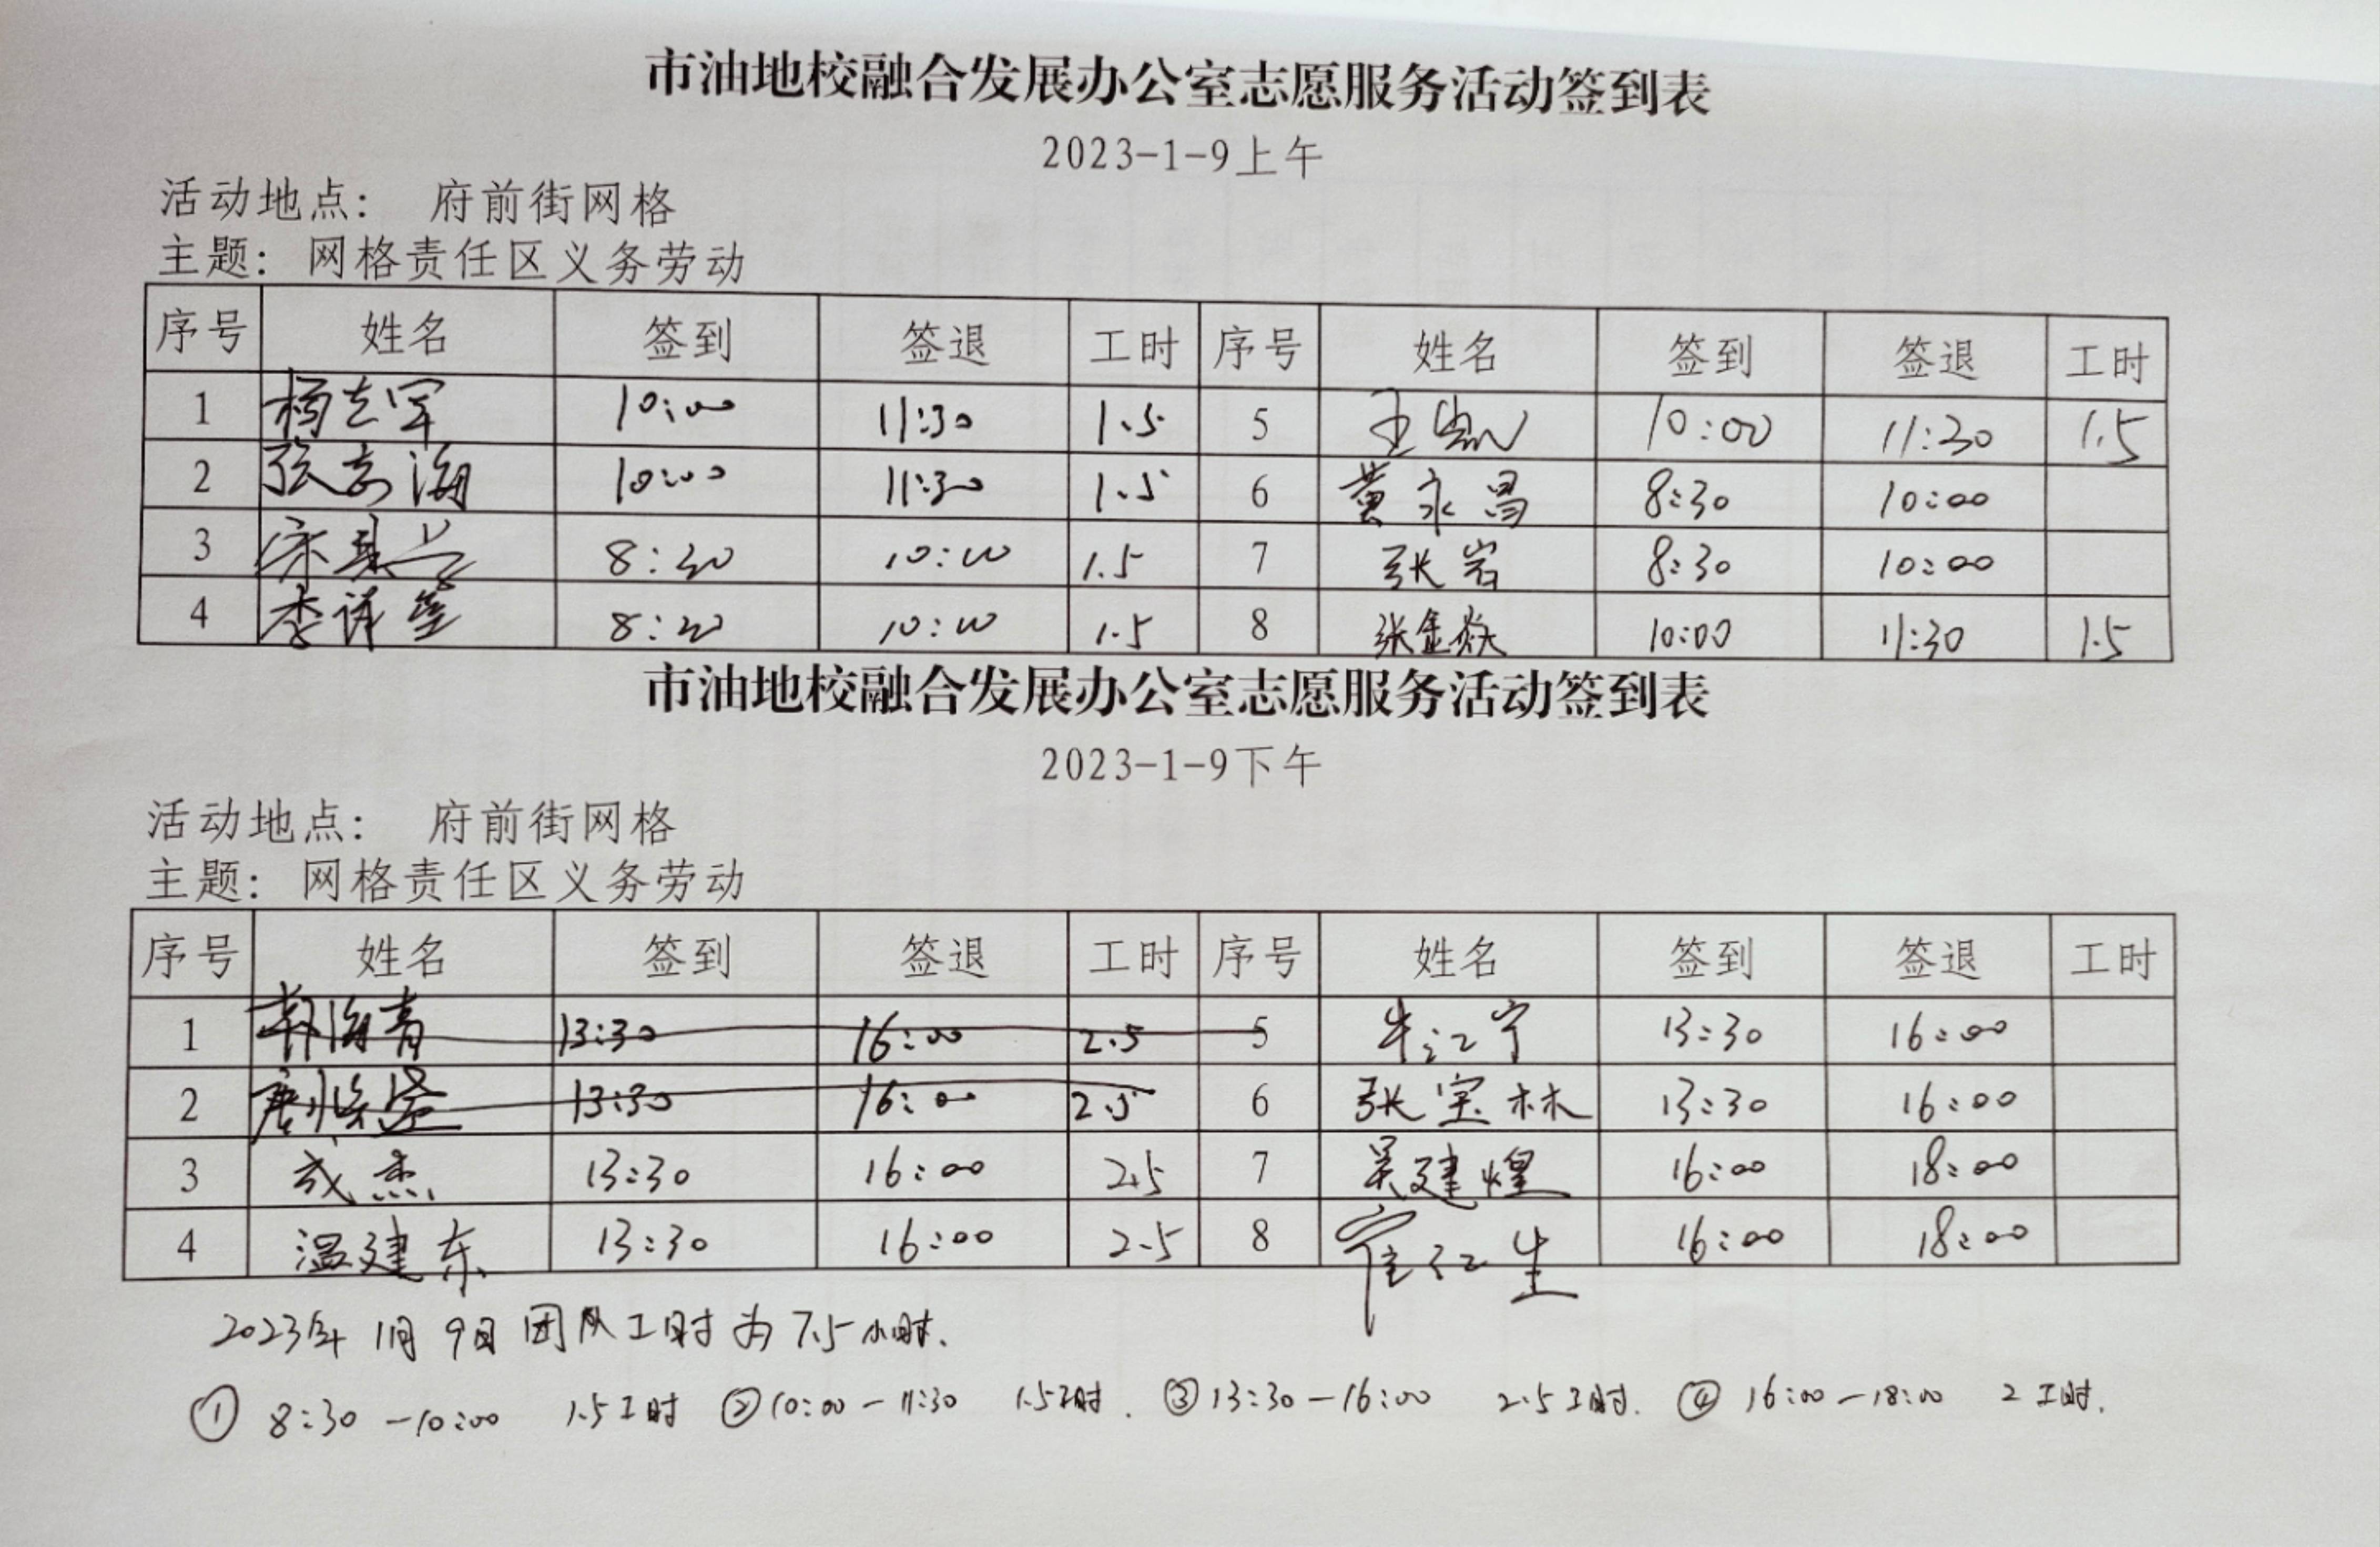 市油地校融合发展办公室志愿服务活动签到表
2023-1-9上午
活动地点： 府前街网格
主题： 网格责任区义务劳动
序号 姓名 签到 签退 工时 序号 姓名 签到 签退 工时
1 杨志军 10:00 11:30 1.5 5 王 10:00 11:30 1.5
2 张志海 10:00 11:30 1.5 6 黄永昌 8:30 10:00
3 8:30 10:00 1.5 7 张岩 8:30 10:00
4 李 8:30 10:00 1.5 8 张金焱 10:00 11:30 1.5
市油地校融合发展办公室志愿服务活动签到表
2023-1-9下午
活动地点： 府前街网格
主题： 网格责任区义务劳动
序号 姓名 签到 签退 工时 序号 姓名 签到 签退 工时
1 韩海青 13:30 16:00 2.5 5 牛江宁 13:30 16:00
2 13:30 16:00 2.5 6 张宝林 13:30 16:00
3 成杰 13:30 16:00 2.5 7 吴建煌 16:00 18:00
4 温建东 13:30 16:00 2.5 8 16:00 18:00
2023年1月9日团队工时为7.5小时.
① 8:30-10:00 1.5工时 ② 10:00-11:30 1.5工时. ③ 13:30-16:00 2.5工时. ④ 16:00-18:00 2工时.